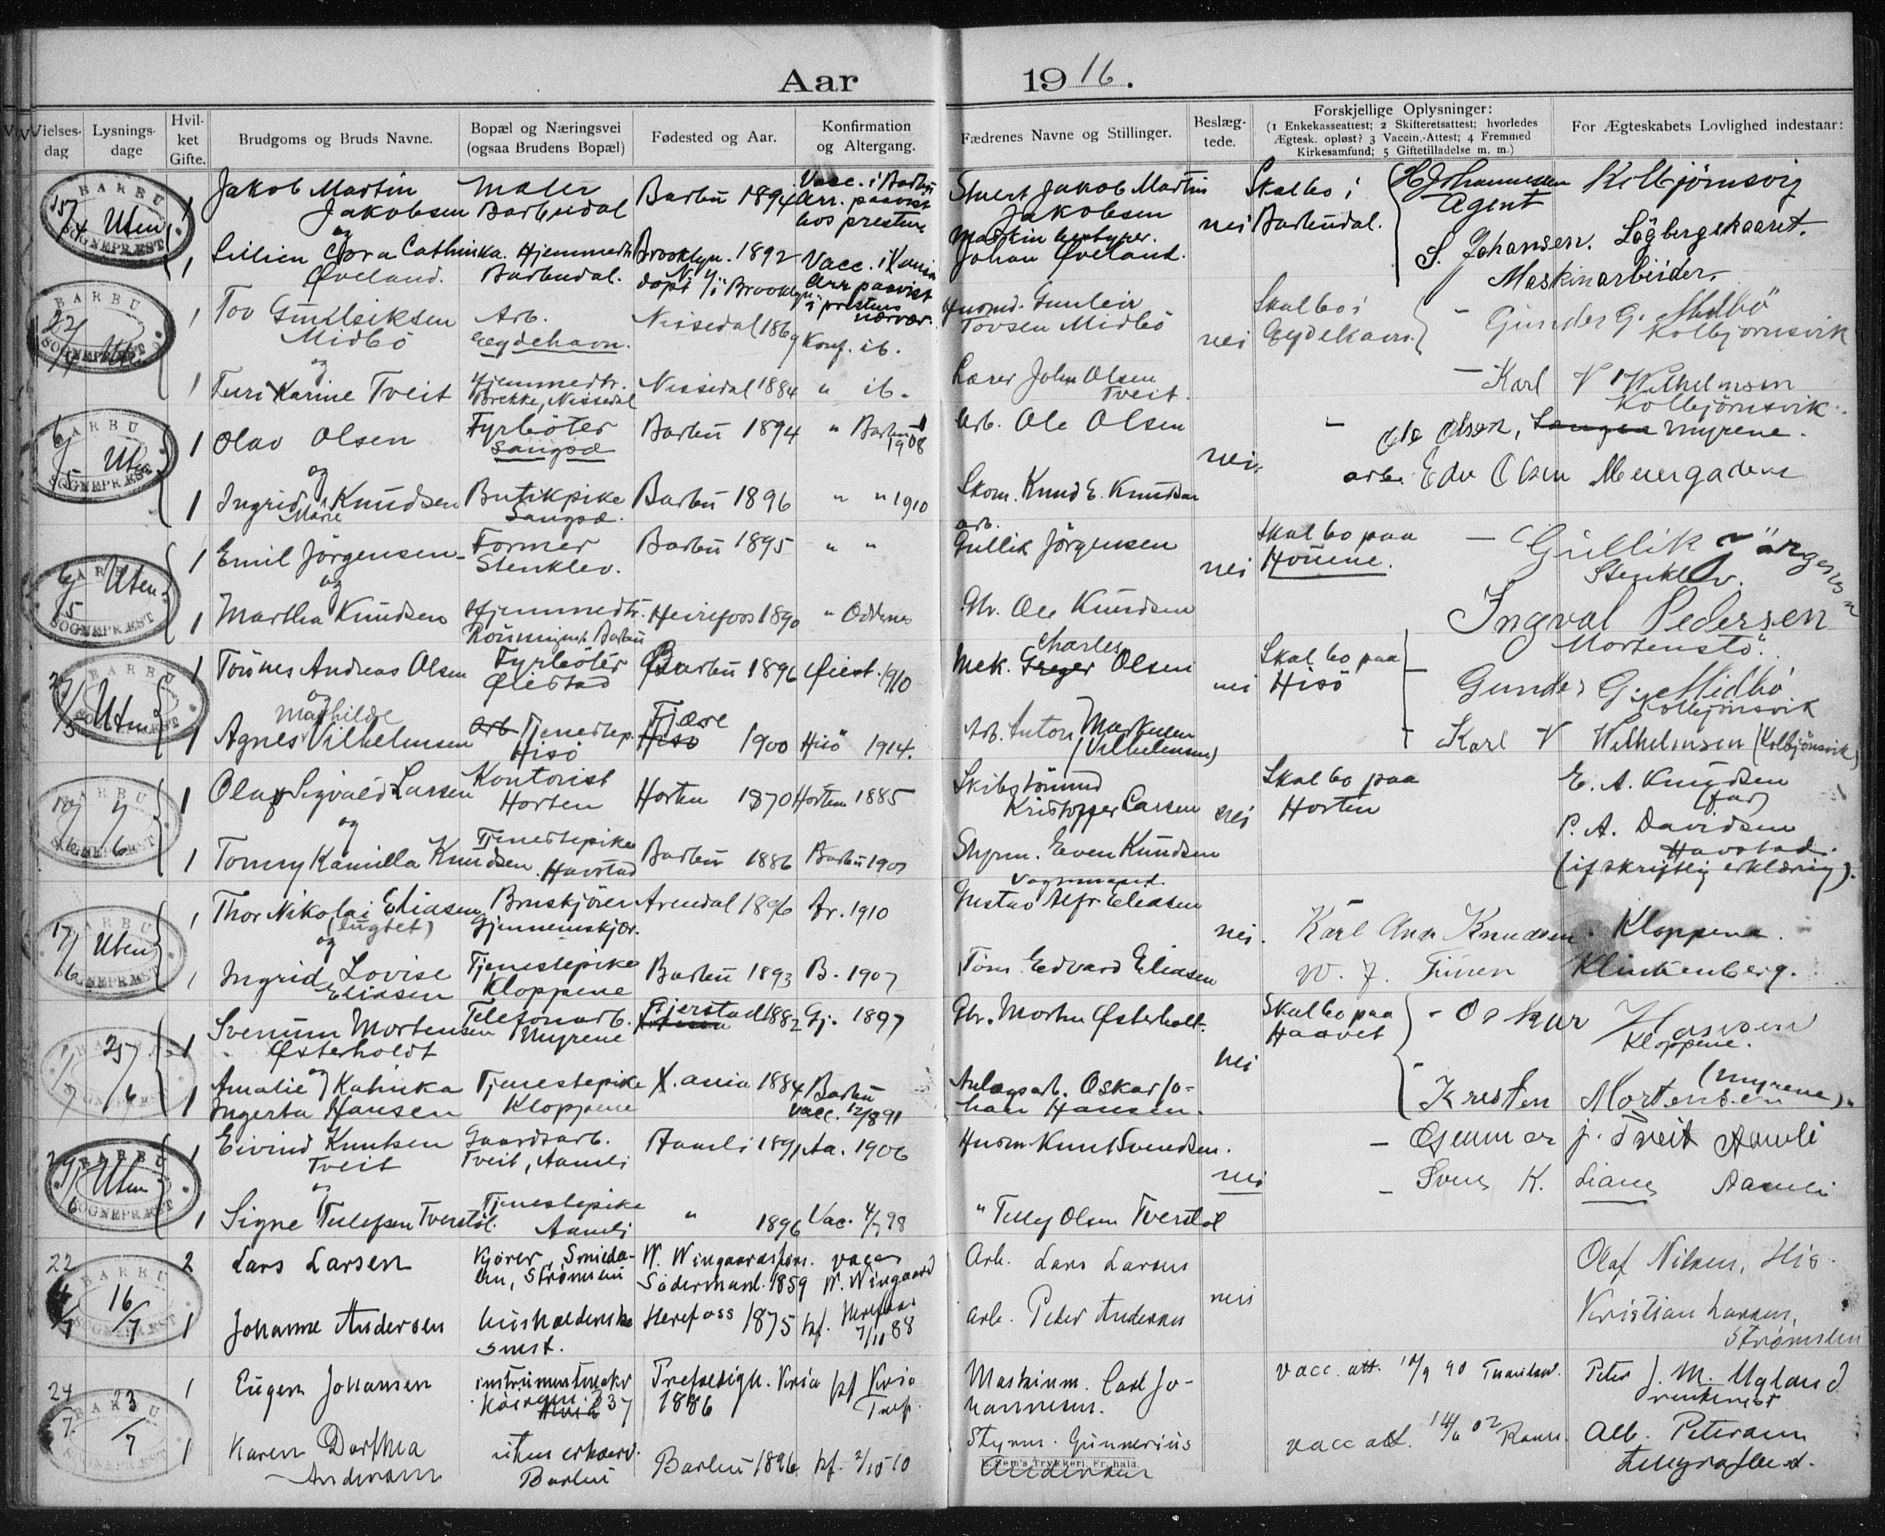 Aar 1916.
Vielses-dag
Lysnings-dage
Hvil-ket Gifte.
Brudgoms og Bruds Navne.
Bopæl og Næringsvei (ogsaa Brudens Bopæl)
Fødested og Aar.
Konfirmation og Altergang.
Fædrenes Navne og Stillinger.
Beslæg-tede.
Forskjellige Oplysninger:
(1 Enkekasseattest; 2 Skifteretsattest; hvorledes Ægtesk. opløst? 3 Vaccin.-Attest; 4 Fremmed Kirkesamfund; 5 Giftetilladelse m. m.)
For Ægteskabets Lovlighed indestaar:
BARBU SOGNEPRÆST
15/4 Uten
1 Jakob Martin Jakobsen
Maler Barbudal
Barbu 1894
Vacc. i Barbu
Arr. paavist hos presten
Stuert Jakob Martin Jakobsen
nei
Skal bo i Barbudal.
H Johannessen Kolbjørnsvig
Agent
og
1 Lillien Cora Cathinka Øveland.
Hjemmedtr. Barbudal.
Brooklyn. 1892
N.Y.
døpt i Brooklyn
Vacc. i
Arr paavist i prestens nærvær.
Maskin
Johan Øveland.
S. Johansen. Løgbergskaaret.
Maskinarbeider.
BARBU SOGNEPRÆST
22/4 Uten
1 Tov Gunleiksen Midbö
Arb. Eydehavn.
Nissedal 1869
Konf. ib.
Husmd. Gunleik Tovsen Midbö
nei
Skal bo i Eydehavn.
- Gunder G. Midbö
Kolbjørnsvik
og
1 Turi Karine Tveit
Hjemmedtr. Brekke, Nissedal
Nissedal 1884
" ib.
Lærer John Olsen Tveit.
- Karl V Wilhelmsen
Kolbjörnsvik.
BARBU SOGNEPRÆST
6/5 Uten
1 Olav Olsen
Fyrböter Langsæ
Barbu 1894
" Barbu 1908
Arb. Ole Olsen
nei
- Ole Olsen, Langsæ Myrene.
og
1 Ingrid Marie Knudsen
Butikpike Langsæ.
Barbu 1896
" " 1910
Skom. Knud E. Knudsen
arb. Edv Olsen Meiergaden
BARBU SOGNEPRÆST
6/5 Uten
1 Emil Jörgensen
Former Stenklev.
Barbu 1895
" "
arb. Gullik Jörgensen
nei
Skal bo paa Houene.
- Gullik Jörgensen
Stenklev.
og
1 Martha Knudsen
Hjemmedtr. Barbu
Heirefoss 1890
" Oddernes
Gbr. Ole Knudsen
Ingval Pedersen
Mortenstö.
BARBU SOGNEPRÆST
/5 Uten
1 Tönnes Andreas Olsen
Fyrböter Øiestad
Barbu 1896
Øiest. 1910
Mek. Greger Charles Olsen
nei
Skal bo paa Hisö
- Gunder G. Midbö
Kolbjönsvik
og
1 Agnes Mathilde Vilhelmsen
Arb Tjenestep. Hisö
Fjære Hisö 1900
Hisö 1914.
Arb. Anton Markusen (Vilhelmsen)
- Karl V Wilhelmsen (Kolbjönsvik)
BARBU SOGNEPRÆST
10/6 4/6
1 Olaf Sigvald Larsen
Kontorist Horten
Horten 1870
Horten 1885
Skibstömmd Kristoffer Larsen
nei
Skal bo paa Horten
E. A. Knudsen
(far)
og
1 Tomry Kamilla Knudsen.
Tjenestepike Havstad
Barbu 1886
Barbu 1901
Styrm. Even Knudsen
P. A. Davidsen
Havstad.
(if skriftlig erklæring).
BARBU SOGNEPRÆST
17/6 Uten
1 Thor Nikolai Eliasen (lugtet)
Bruskjörer Gjennemskjær.
Arendal 1896
Ar. 1910
Vognmand. Gustav Alfr Eliasen
nei.
Karl And Knudsen. Kloppene.
og
1 Ingrid Lovise Eliasen
Tjenestepike Kloppene
Barbu 1893
B. 1907
Töm. Edvard Eliasen
W. J. Klinkenberg.
BARBU SOGNEPRÆST
1/7 25/6
1 Svenum Mortensen Østerholdt
Telefonarb. Myrene
Gjerstad 1882
Gj. 1897
Gbr. Morten Østerholt.
nei
Skal bo paa Haavet
- Oskar Hansen
Kloppene.
og
1 Amalie Katinka Ingerta Hansen
Tjenestepike Kloppene
X.ania 1884
Barbu vacc. 12/8 91
Anlægsarb. Oskar Johan Hansen.
- Kresten Mortensen (Myrene).
BARBU SOGNEPRÆST
29/6 Uten
1 Eivind Knutsen Tveit
Gaardsarb. Tveit, Aamli
Aamli 1891
Aa. 1906
Husm Knut Svendsen.
nei
- Gunnar J. Tveit Aamli
og
1 Signe Tellefsen Tverstöl.
Tjenestepike Aamli
" 1896
Vac. 4/7 98
" Tellef Olsen Tverstöl
- Sven K. Liane Aamli
BARBU SOGNEPRÆST
22/7 16/7
2 Lars Larsen
Kjører, Strømsbu
W. Wingaarastøm. Södermanl. 1859
vacc W. Wingaard
Arb. Lars Larsen
nei
Olaf Nilsen, His.
1 Johanne Andersen
Husholderske smst.
Herefoss 1875
kf. Herefoss 7/10 88
Arb. Peder Andersen
Kristian Larsen,
Strömsbu
BARBU SOGNEPRÆST
24/7. 23/7
1 Eugen Johansen
instrumentmaker
Kria 1886
kf Kria
Maskinm. Carl Johannesen.
vacc. att. 10/9 90
Peter J. M. Ugland
1 Karen Dorthea Andersen
uten erhverv. Barbu
Barbu 1896
kf. 2/10 10
Styrm. Gunnerius Andersen
vacc att. 14/6 02
Alb. Petersen
Telegrafbud.